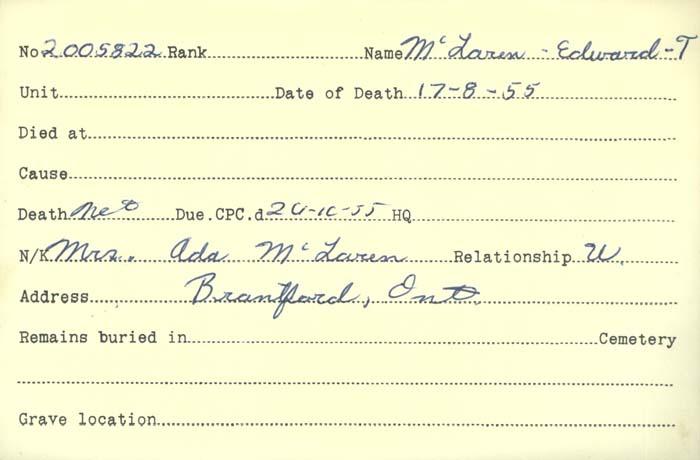 No 2005822 Rank Name McLaren - Edward - T
Unit Date of Death 17-8-55
Died at
Cause
Death Not Due. CPC.d 20-10-55 HQ
N/K Mrs. Ada McLaren Relationship W.
Address Brantford, Ont.
Remains buried in Cemetery
Grave location